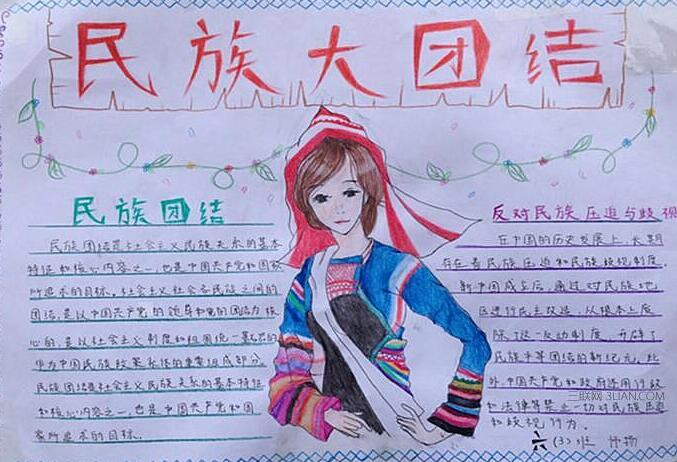 民族大团结
民族团结
民族团结是社会主义民族关系的基本
特征和核心内容之一,也是中国共产党和国家
所追求的目标。社会主义社会各民族之间的
团结,是以中国共产党的领导和党的团结为核
心的,是以社会主义制度和祖国统一为
中国民族政策总体的重要组成部分。
民族团结是社会主义民族关系的基本特征
和核心内容之一,也是中国共产党和国
家所追求的目标。
反对民族压迫与歧视
在中国的历史发展上,长期
存在着民族压迫和民族歧视制度。
新中国成立后,通过对民族地
区进行民主改造,从根本上废
除了这一反动制度,开辟了
民族平等团结的新纪元。此
外,中国共产党和政府还用行政
和法律等禁止一切对民族压迫
和歧视行为。
六(3)班
三联网 3LIAN.COM